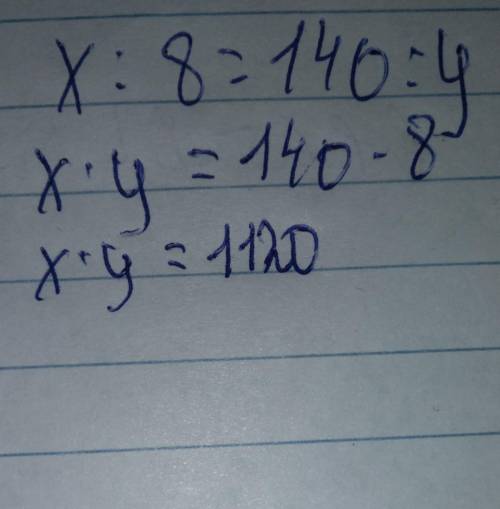 x : 8 = 140 : y
x · y = 140 · 8
x · y = 1120